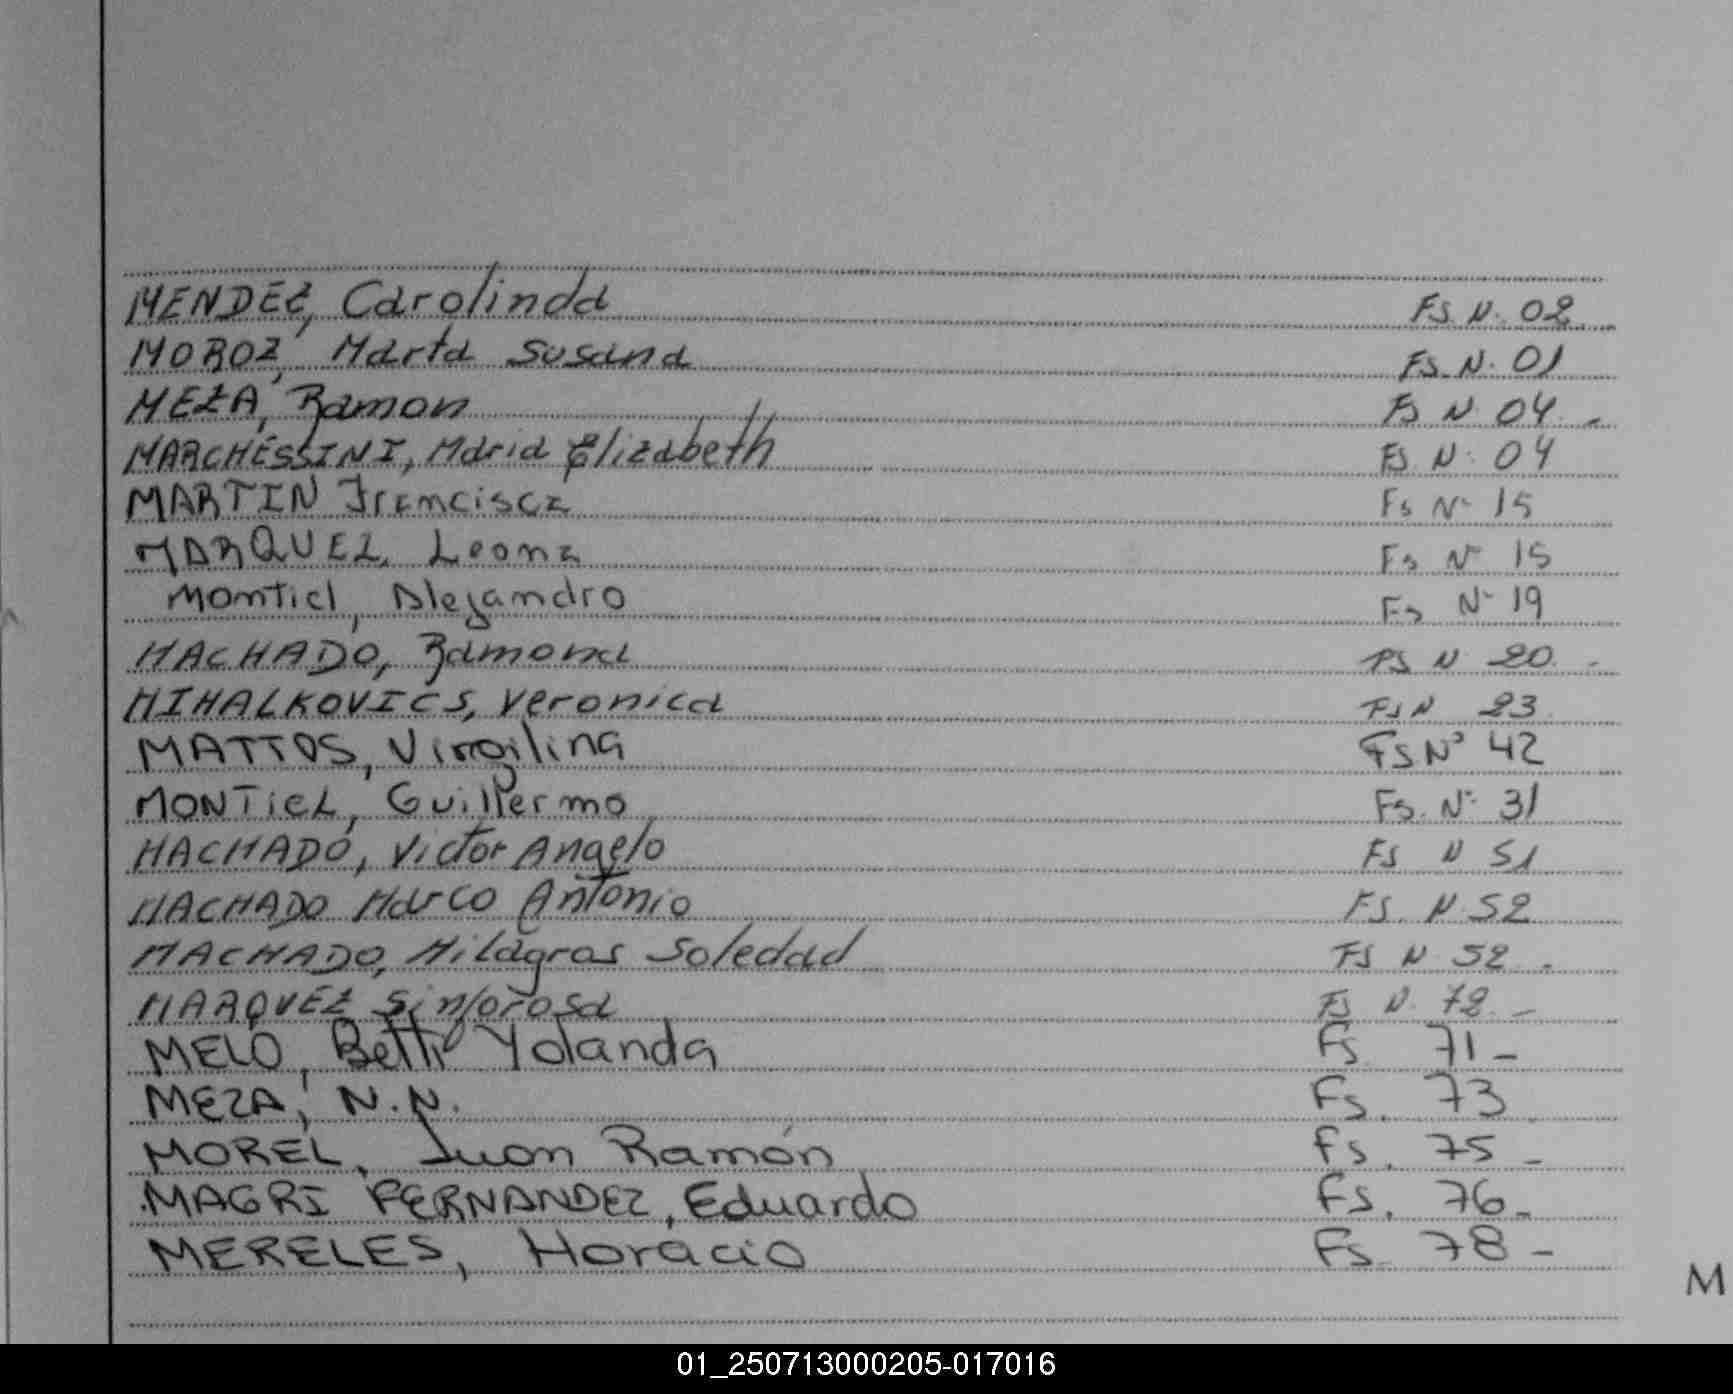 MENDEZ, Carolinda FS. N. 02
MOROZ, Marta Susana FS. N. 01
MEZA, Ramon FS N. 04 -
MARCHESSINI, Maria Elizabeth FS. N. 04
MARTIN Francisca Fs Nº 15
MARQUEZ, Leona Fs Nº 15
Montiel, Alejandro Fs Nº 19
MACHADO, Ramona FS N 20. -
MIHALKOVICS, Veronica FS N 23
MATTOS, Virgilina FS Nº 42
MONTIEL, Guillermo Fs. Nº 31
MACHADO, Victor Angelo FS N 51
MACHADO Marco Antonio FS. N. 52
MACHADO, Milagros Soledad FS N. 52 -
MARQUEZ Sinforosa FS N. 72. -
MELO, Betti Yolanda Fs. 71 -
MEZA, N.N. Fs. 73
MOREL, Juan Ramón Fs. 75 -
MAGRI FERNANDEZ, Eduardo Fs. 76 -
MERELES, Horacio Fs. 78 -
M
01_250713000205-017016